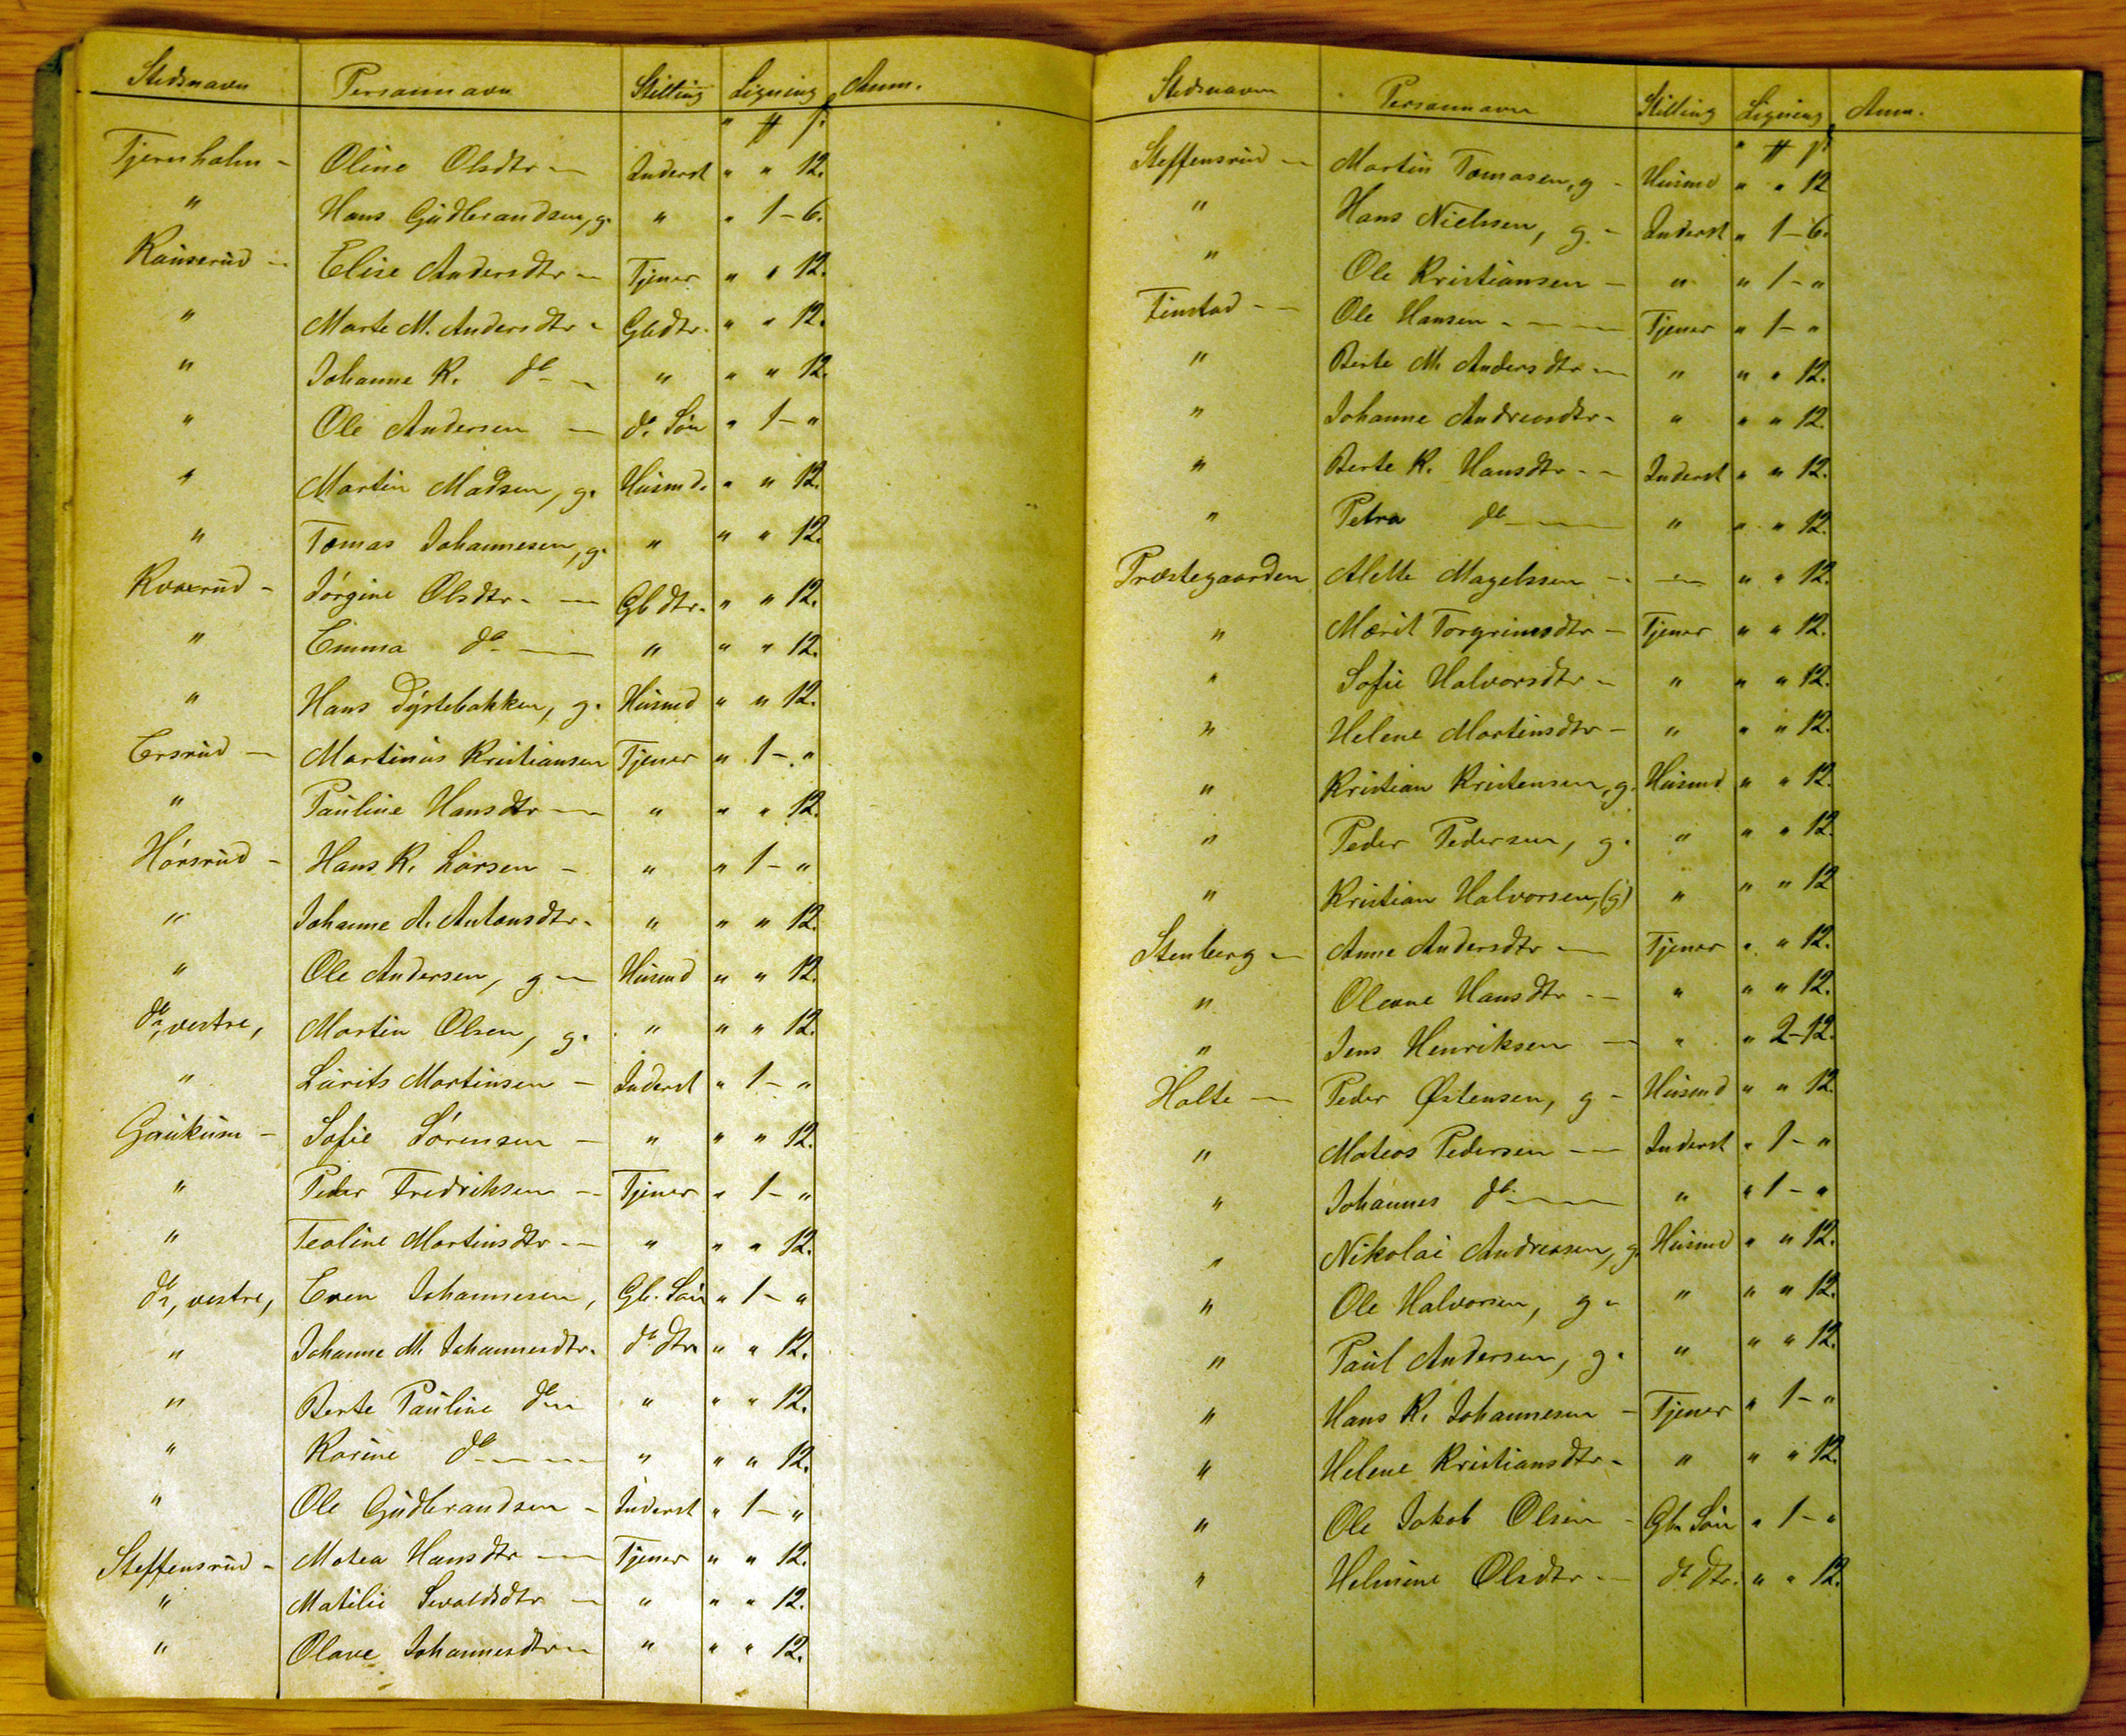 Stedsnavn Personnavn Stilling Ligning Anm.
" # ſ.
Tjernholm - Oline Olsdtr - Inderst " " 12.
" Hans Gudbrandsen, g. " " 1-6.
Rauserud - Elise Andersdtr - Tjener " " 12.
" Marte M. Andersdtr - Gbdtr. " " 12.
" Johanne K. do - " " " 12.
" Ole Andersen - do. Søn " 1- "
" Martin Madsen, g. Husmd. " " 12.
" Tomas Johannesen, g. " " " 12.
Kværud - Jørgine Olsdtr. - Gbdtr. " " 12.
" Emma do - " " " 12.
" Hans Dystebakken, g. Husmd " " 12.
Ersrud - Martinus Kristiansen Tjener " 1- "
" Pauline Hansdtr - " " " 12.
Hørsrud - Hans K. Larsen - " " 1- "
" Johanne A. Antonsdtr. " " " 12.
" Ole Andersen, g - Husmd " " 12.
do, vestre, Martin Olsen, g. " " " 12.
" Laurits Martinsen - Inderst " 1- "
Gaukum - Sofie Sørensen - " " " 12.
" Peder Fredriksen - Tjener " 1- "
" Teoline Martinsdtr - " " " 12.
do, vestre, Even Johannesen, Gb. Søn " 1- "
" Johanne M. Johannesdtr. do dtr " " 12.
" Berte Pauline do - " " " 12.
" Karine do - " " " 12.
" Ole Gudbrandsen - Inderst " 1- "
Steffensrud - Matea Hansdtr - Tjener " " 12.
" Matilie Sevaldsdtr - " " " 12.
" Olave Johannesdtr - " " " 12.
Stedsnavn Personnavn Stilling Ligning Anm.
" # ſ.
Steffensrud - Martin Tomasen, g - Husmd " " 12
" Hans Nielssen, g. - Inderst " 1-6.
" Ole Kristiansen - " " 1- "
Finstad - Ole Hansen - Tjener " 1- "
" Berte M. Andersdtr - " " " 12.
" Johanne Andreasdtr - " " " 12.
" Berte K. Hansdtr - Inderst " " 12.
" Petra do - " " " 12.
Præstegaarden Alette Magelssen - - " " 12.
" Marit Torgrimsdtr - Tjener " " 12.
" Sofie Halvorsdtr - " " " 12.
" Helene Martinsdtr - " " " 12.
" Kristian Kristensen, g. Husmd " " 12.
" Peder Pedersen, g. " " " 12.
" Kristian Halvorsen, (g) " " " 12
Stenberg - Anne Andersdtr - Tjener " " 12.
" Oleane Hansdtr - " " " 12.
" Jens Henriksen - " " 2-12.
Holte - Peder Østensen, g - Husmd " " 12.
" Mateas Pedersen - Inderst " 1- "
" Johannes do - " " 1- "
" Nikolai Andreasen, g. Husmd " " 12.
" Ole Halvorsen, g - " " " 12.
" Paul Andersen, g. " " " 12.
" Hans K. Johannesen - Tjener " 1- "
" Helene Kristiansdtr - " " " 12.
" Ole Jakob Olsen - Gb. Søn " 1- "
" Helmine Olsdtr - do dtr. " " 12.